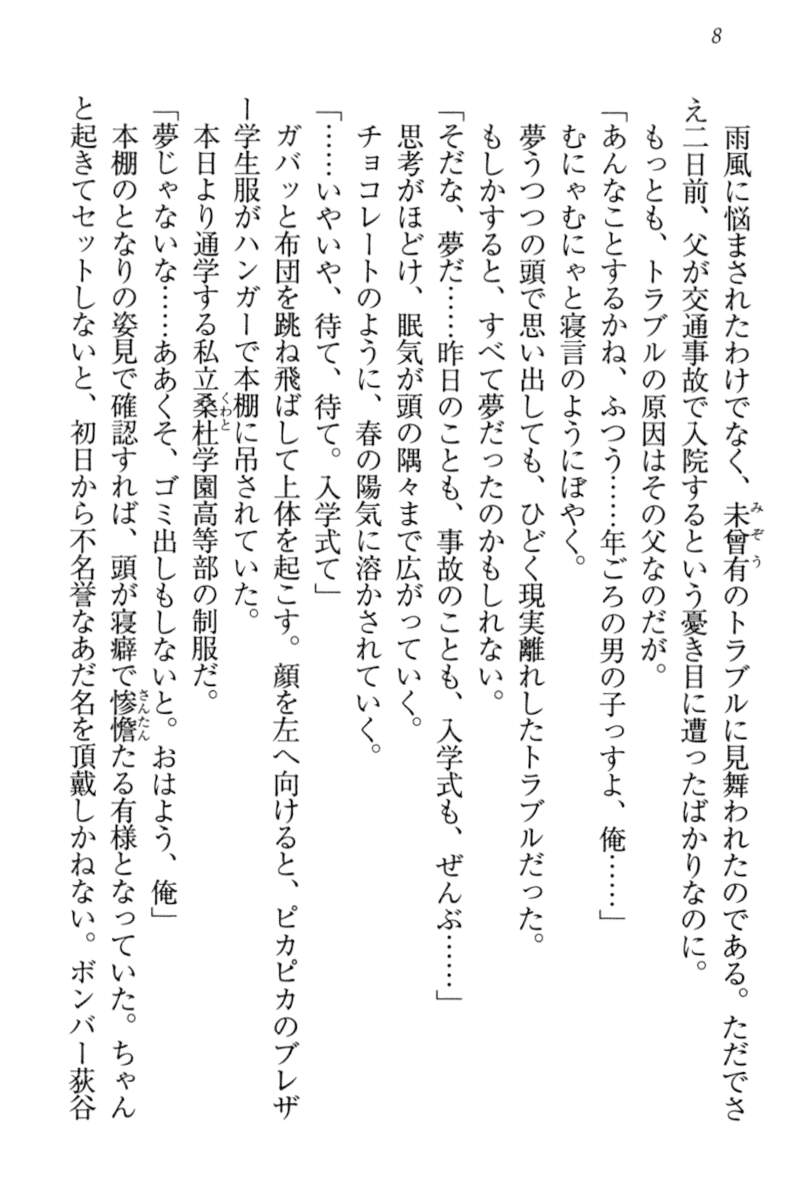 8
雨風に悩まされたわけでなく、未曾有のトラブルに見舞われたのである。ただでさ
え二日前、父が交通事故で入院するという憂き目に遭ったばかりなのに。
もっとも、トラブルの原因はその父なのだが。
「あんなことするかね、ふつう……年ごろの男の子っすよ、俺……」
むにゃむにゃと寝言のようにぼやく。
夢うつつの頭で思い出しても、ひどく現実離れしたトラブルだった。
もしかすると、すべて夢だったのかもしれない。
「そだな、夢だ……昨日のことも、事故のことも、入学式も、ぜんぶ……」
思考がほどけ、眠気が頭の隅々まで広がっていく。
チョコレートのように、春の陽気に溶かされていく。
「……いやいや、待て、待て。入学式て」
ガバッと布団を跳ね飛ばして上体を起こす。顔を左へ向けると、ピカピカのブレザ
ー学生服がハンガーで本棚に吊されていた。
本日より通学する私立桑杜学園高等部の制服だ。
「夢じゃないな……ああくそ、ゴミ出しもしないと。おはよう、俺」
本棚のとなりの姿見で確認すれば、頭が寝癖で惨憺たる有様となっていた。ちゃん
と起きてセットしないと、初日から不名誉なあだ名を頂戴しかねない。ボンバー荻谷
みぞう
くわと
さんたん